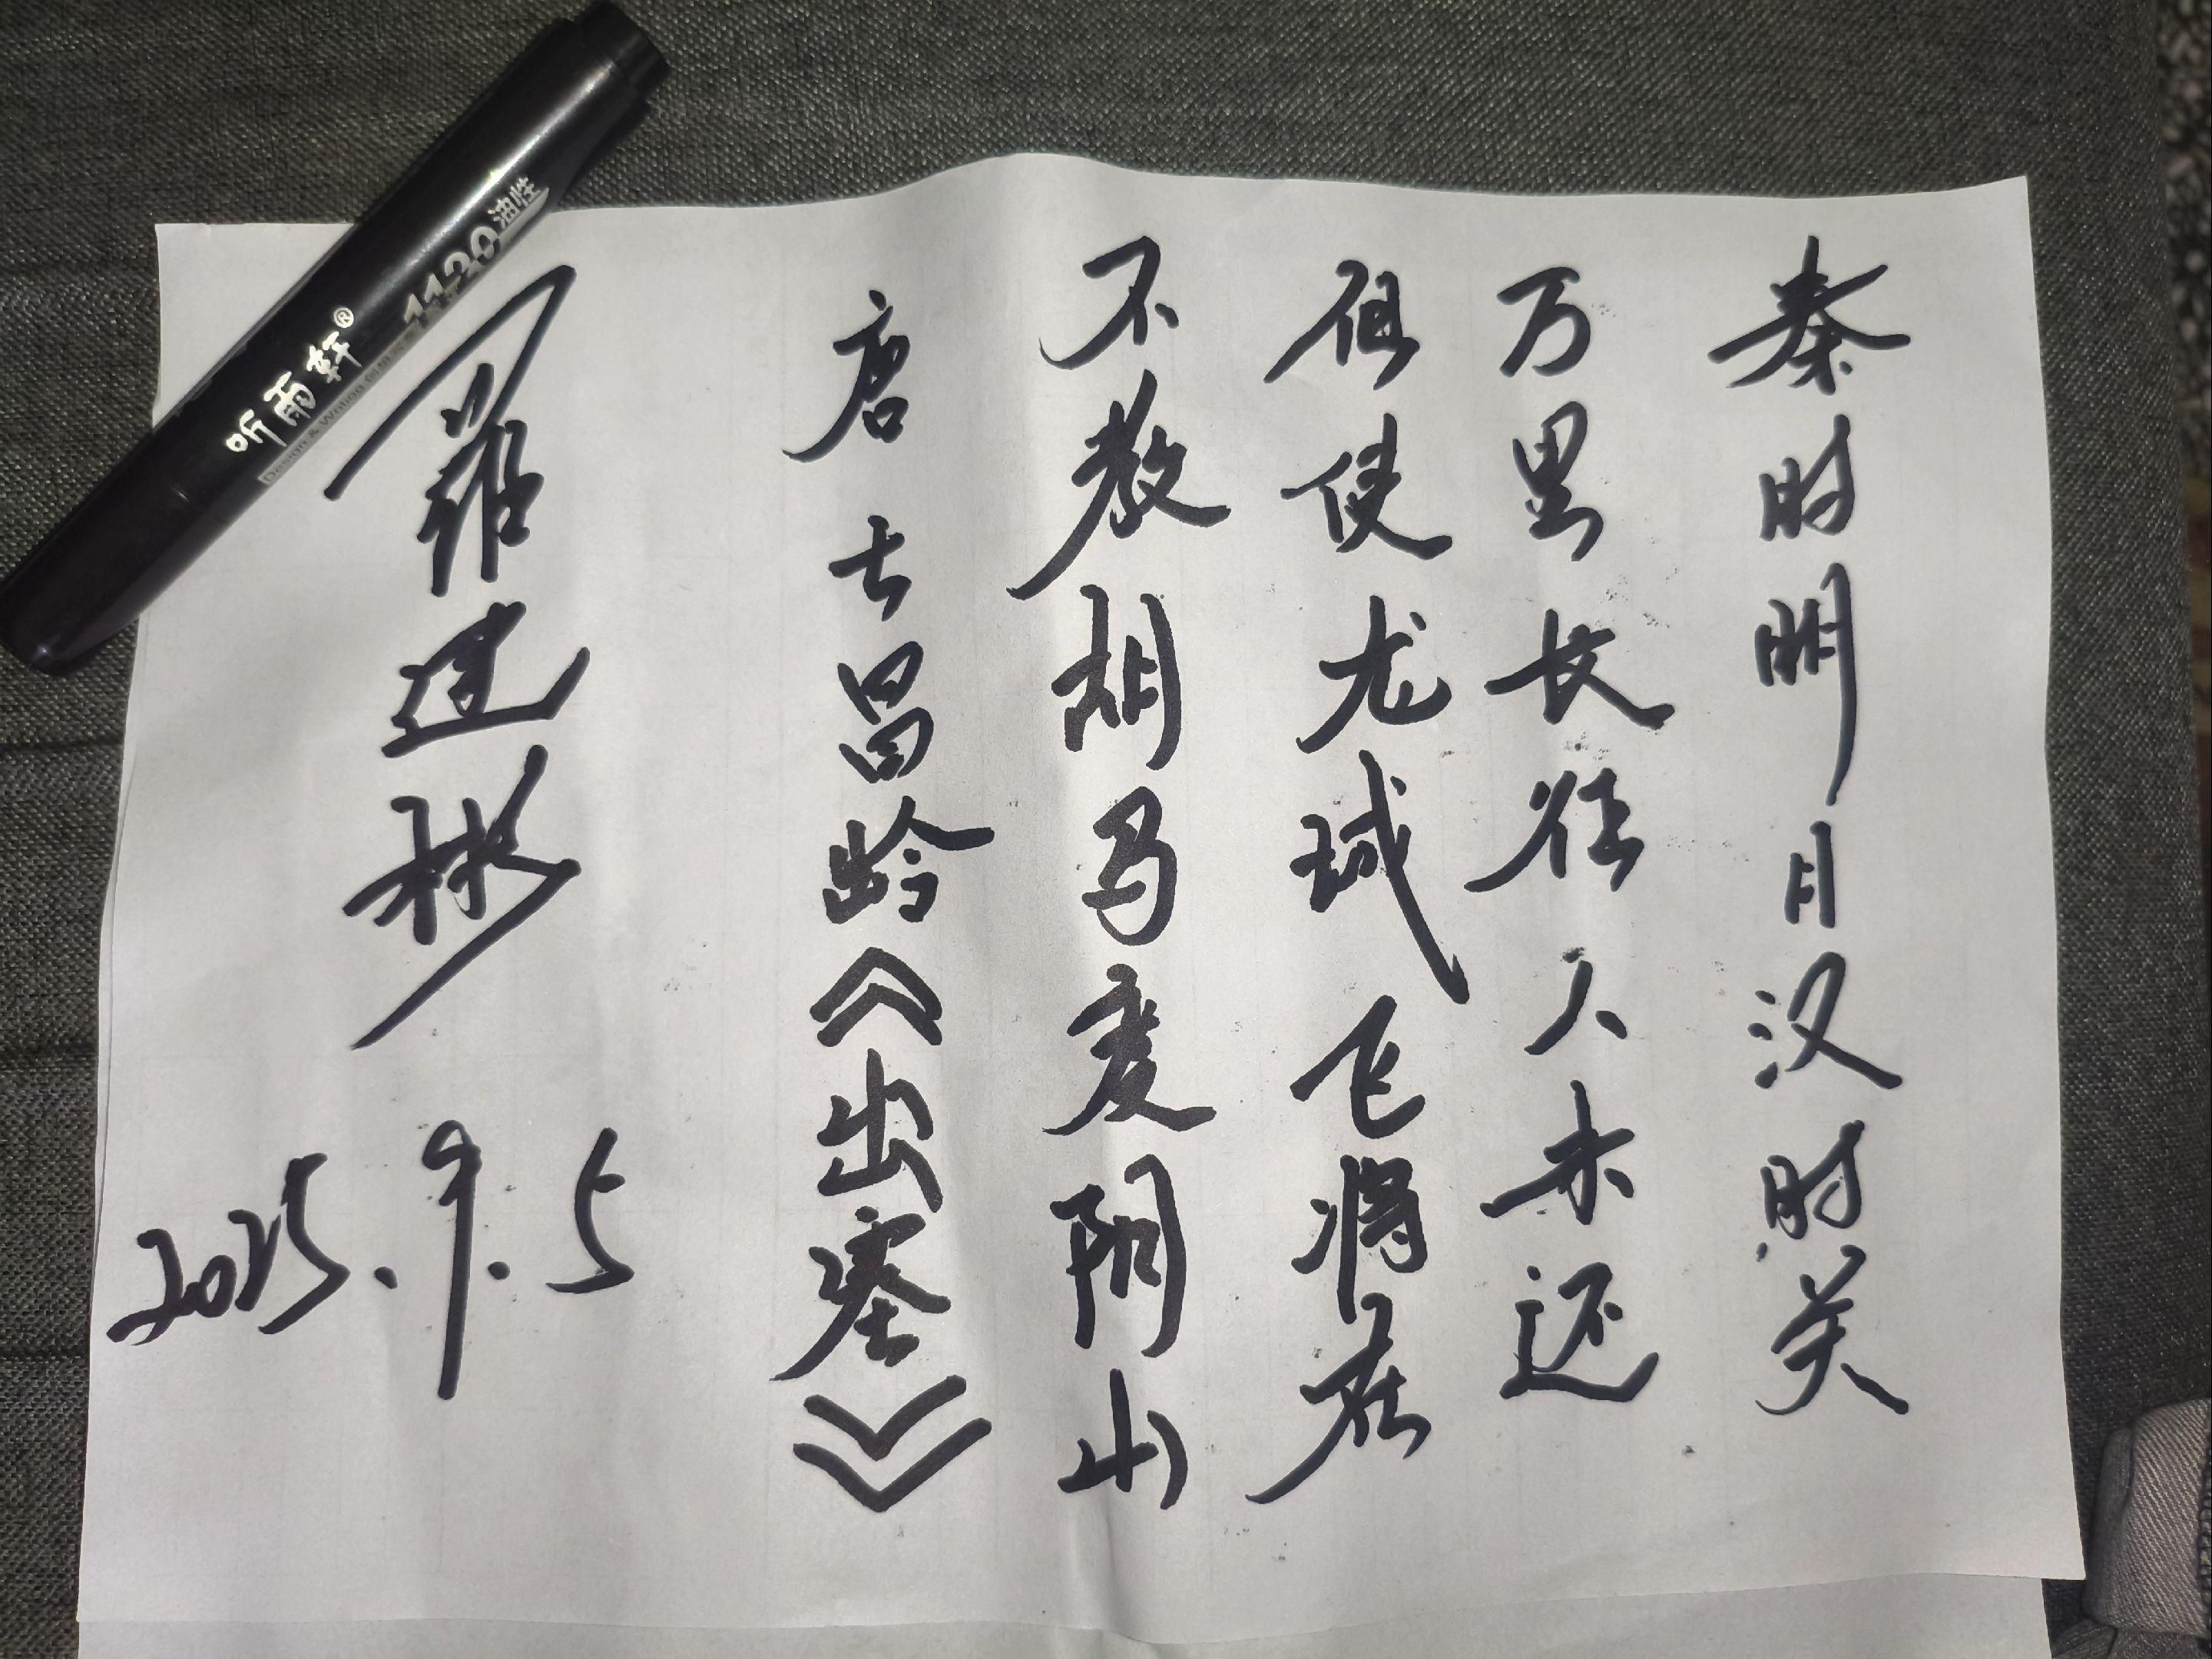 秦时明月汉时关
万里长征人未还
但使龙城飞将在
不教胡马度阴山
唐 王昌龄《出塞》
羅建彬
2025.9.5
听雨轩®
1120油性
Design & Writing